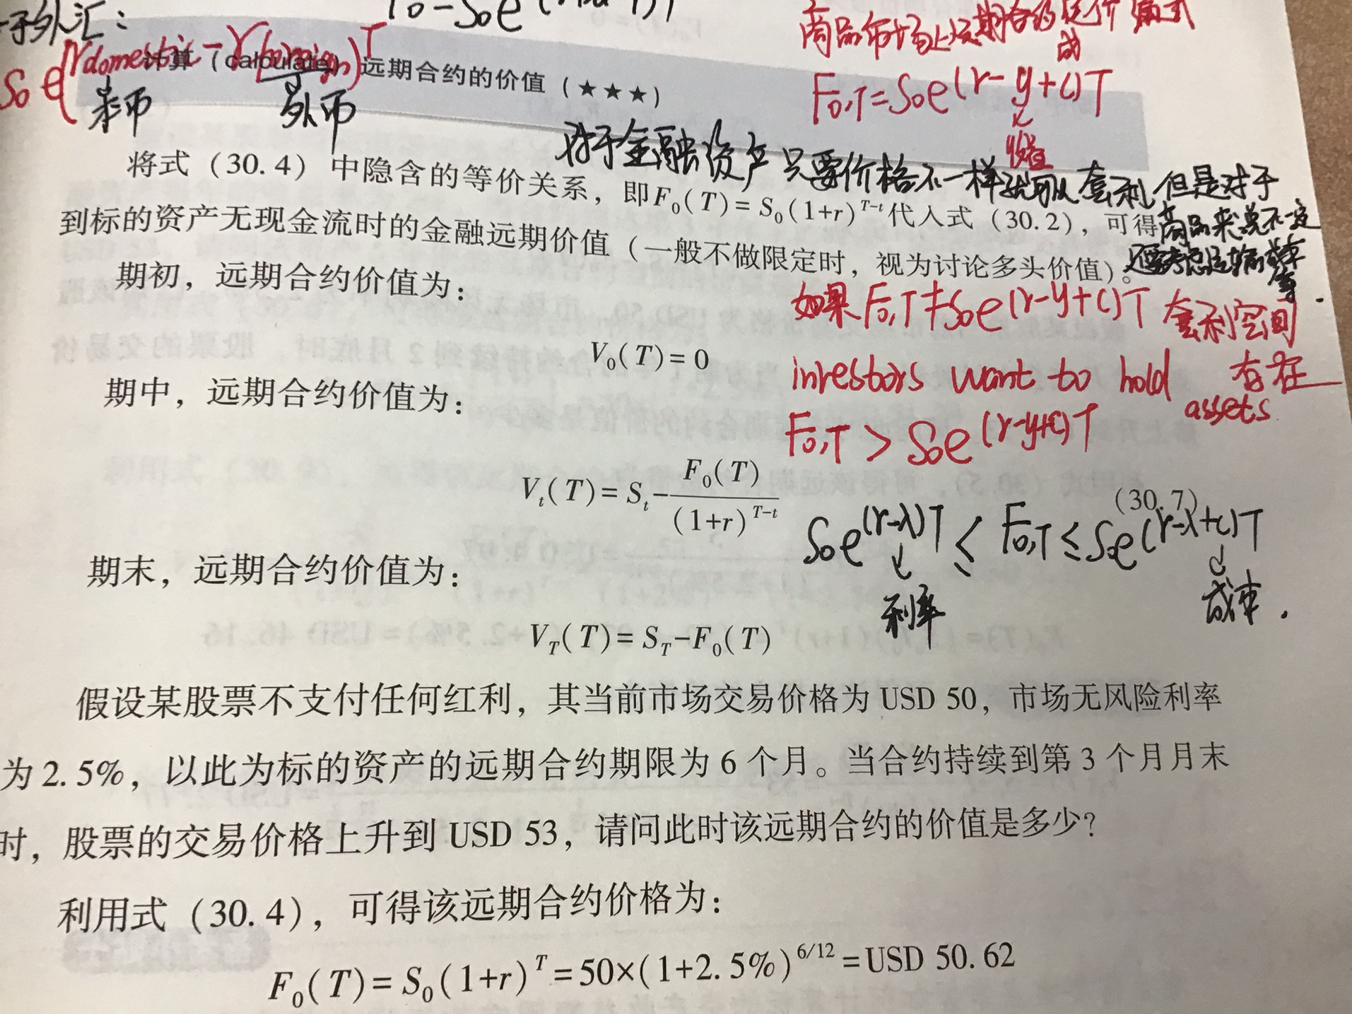 于外汇：
S₀e^(r domestic - r foreign)T
本币 外币
计算（calculate）远期合约的价值（★★★）
F₀,T=S₀e^(r-y+c)T
成
收益
对于金融资产只要价格不一样就可以套利 但是对于
商品来说不一定
将式（30.4）中隐含的等价关系，即F₀(T)=S₀(1+r)^T-t代入式（30.2），可得
到标的资产无现金流时的金融远期价值（一般不做限定时，视为讨论多头价值）。
期初，远期合约价值为：
如果 F₀,T≠S₀e^(r-y+c)T 套利空间
存在
V₀(T)=0
investors want to hold
assets
期中，远期合约价值为：
F₀,T > S₀e^(r-y+c)T
V_t(T)=S_t-F₀(T)/(1+r)^T-t
(30.7)
S₀e^(r-λ)T ≤ F₀,T ≤ S₀e^(r-λ+c)T
利率 成本.
期末，远期合约价值为：
V_T(T)=S_T-F₀(T)
假设某股票不支付任何红利，其当前市场交易价格为 USD 50，市场无风险利率
为 2.5%，以此为标的资产的远期合约期限为 6 个月。当合约持续到第 3 个月月末
时，股票的交易价格上升到 USD 53，请问此时该远期合约的价值是多少？
利用式（30.4），可得该远期合约价格为：
F₀(T)=S₀(1+r)^T=50×(1+2.5%)^6/12=USD 50.62